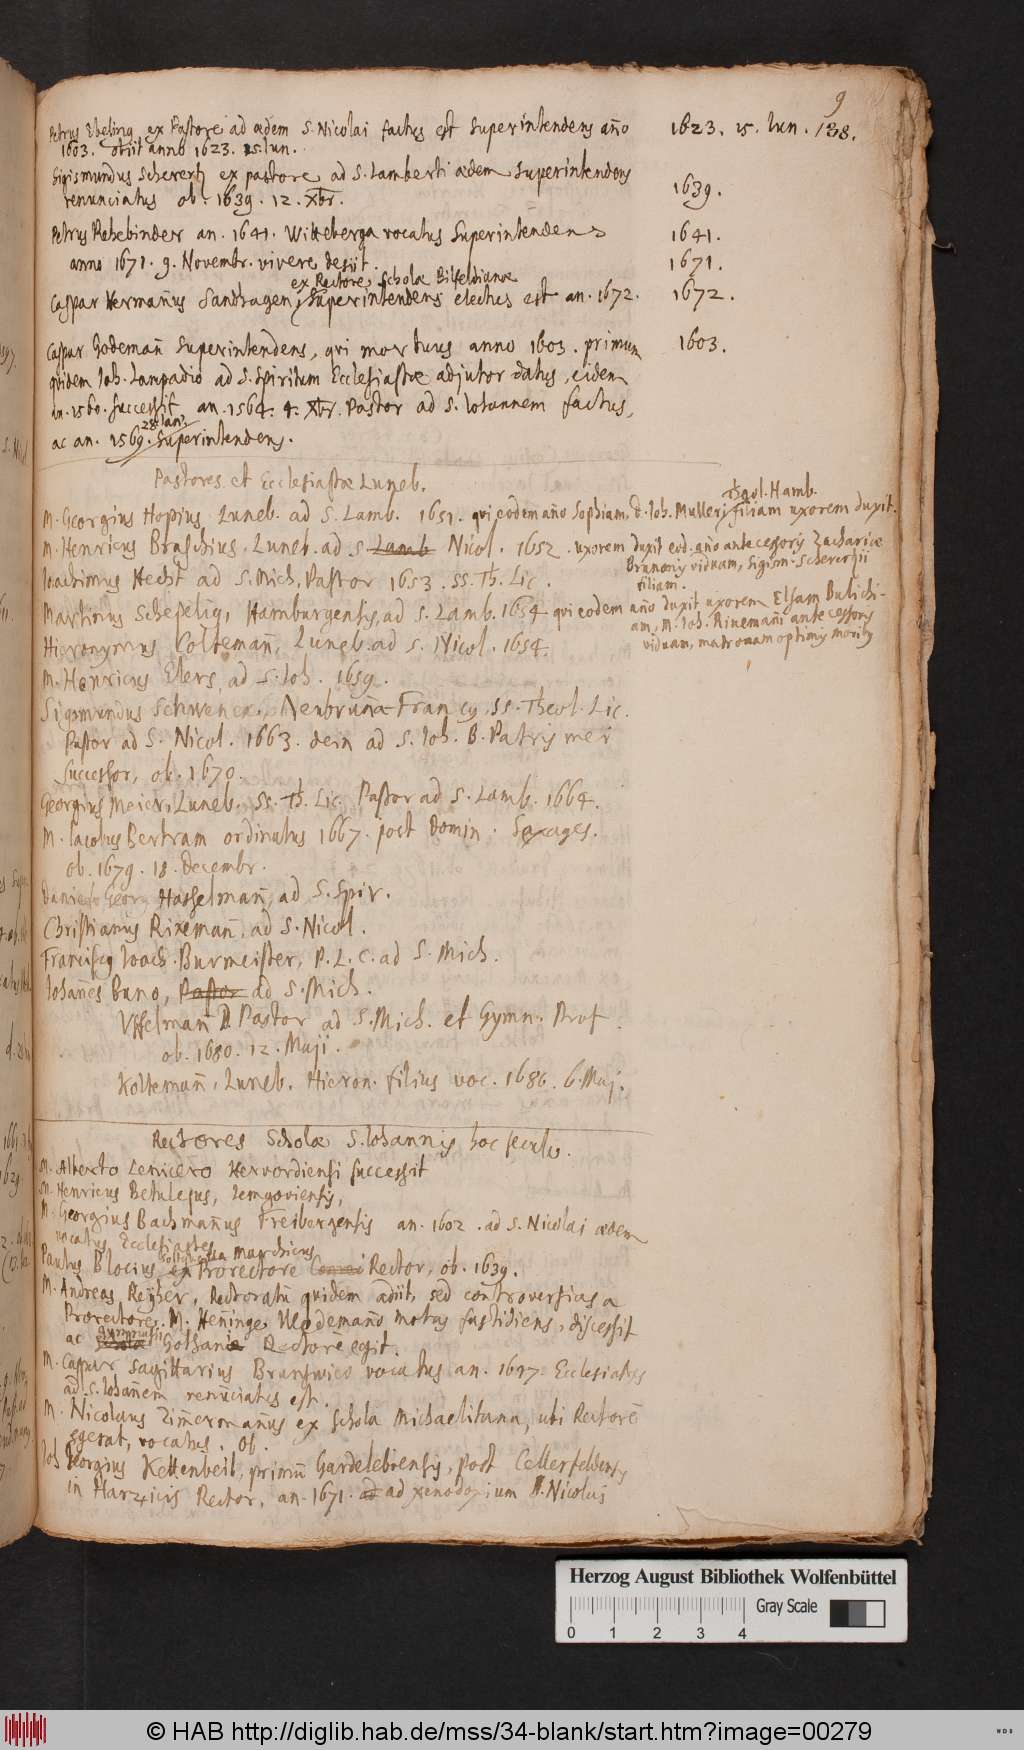 9
138.
Petrus Ebeling, ex Pastore ad ædem S. Nicolai factus est Superintendens año 1623. 15. Iun.
1603. obiit anno 1623. 15. Iun.
Sigismundus Scherertz ex pastore ad S. Lamberti ædem Superintendens
renunciatus ob. 1639. 12. Xbr. 1639.
Petrus Rehebinder an. 1641. Witteberga vocatus Superintendens 1641.
anno 1671. 9. Novembr. vivere desiit. 1671.
ex Rectore Scholæ Bilfeldianæ
Caspar Hermañus Sandhagen, Superintendens electus est an. 1672. 1672.
Caspar Godemañ Superintendens, qui mortuus anno 1603. primum 1603.
quidem Ioh. Lampadio ad S. Spiritum Ecclesiastæ adjutor datus, eidem
an. 1560. successit, an. 1564. 4. Xbr. Pastor ad S. Iohannem factus,
28. Ian.
ac an. 1569. Superintendens.
Pastores et Ecclesiastæ Luneb.
M. Georgius Hopius, Luneb. ad S. Lamb. 1651. qui eodem año Sophiam, d. Ioh. Mulleri Theol. Hamb. filiam uxorem duxit.
M. Henricus Braschius, Luneb. ad S. Lamb Nicol. 1652. uxorem duxit eod. año antecessoris Zachariæ
Brunonis viduam, Sigism. Scherertzii
filiam.
Ioachimus Hecht ad S. Mich. Pastor 1653. SS. Th. Lic.
Martinus Schepelig, Hamburgensis, ad S. Lamb. 1654 qui eodem año duxit uxorem Elsam Bulichi-
am, M. Ioh. Rinemañi antecessoris
viduam, matronam optimis moribus
Hieronymus Coltemañ, Luneb. ad S. Nicol. 1654.
M. Henricus Elers, ad S. Ioh. 1659.
Sigismundus Schwenck, SS. Theol. Lic.
Pastor ad S. Nicol. 1663. dein ad S. Ioh. B. Patris mei
successor, ob. 1670.
Georgius Meier, Luneb. SS. Th. Lic. Pastor ad S. Lamb. 1664.
M. Iacobus Bertram ordinatus 1667. post Domin. Sexages.
ob. 1679. 18. Decembr.
Daniel Georg Hasselmañ, ad S. Spir.
Christianus Rixemañ, ad S. Nicol.
Franciscus Ioach. Burmeister, P. L. C. ad S. Mich.
Iohañes Buno, Pastor ad S. Mich.
Uffelmañ D. Pastor ad S. Mich. et Gymn. Prof.
ob. 1680. 12. Maji.
Koltemañ, Luneb. Hieron. filius voc. 1686. 6. Maj.
Rectores Scholæ S. Iohannis hoc seculo.
M. Alberto Lenicero Hervordiensi successit
M. Henricus Betulejus, Lemgoviensis,
M. Georgius Bachmañus Freibergensis an. 1602. ad S. Nicolai ædem
vocatus Ecclesiastes
Soltquella Marchicus
Paulus Blocius ex Prorectore Rector, ob. 1639.
M. Andreas Reyher, Rectoratū quidem adiit, sed controversias a
Prorectore, M. Heñinge Wedemañō motas fastidiens, discessit
gymnasii
ac Schola Gothani Rectorē egit.
M. Caspar Sagittarius Brunswico vocatus an. 1647 Ecclesiastes
ad S. Iohañem renūciatus est.
M. Nicolaus Zim̃ermañus ex Schola Michaelitana, ubi Rectorē
egerat, vocatus. ob.
Ioh Georgius Kettenbeil, primū Gardelebiensis, post Cellerfeldensis
in Harzicis Rector, an. 1671. ad ad xenodoxium S. Nicolai
Herzog August Bibliothek Wolfenbüttel
Gray Scale
0 1 2 3 4
© HAB http://diglib.hab.de/mss/34-blank/start.htm?image=00279